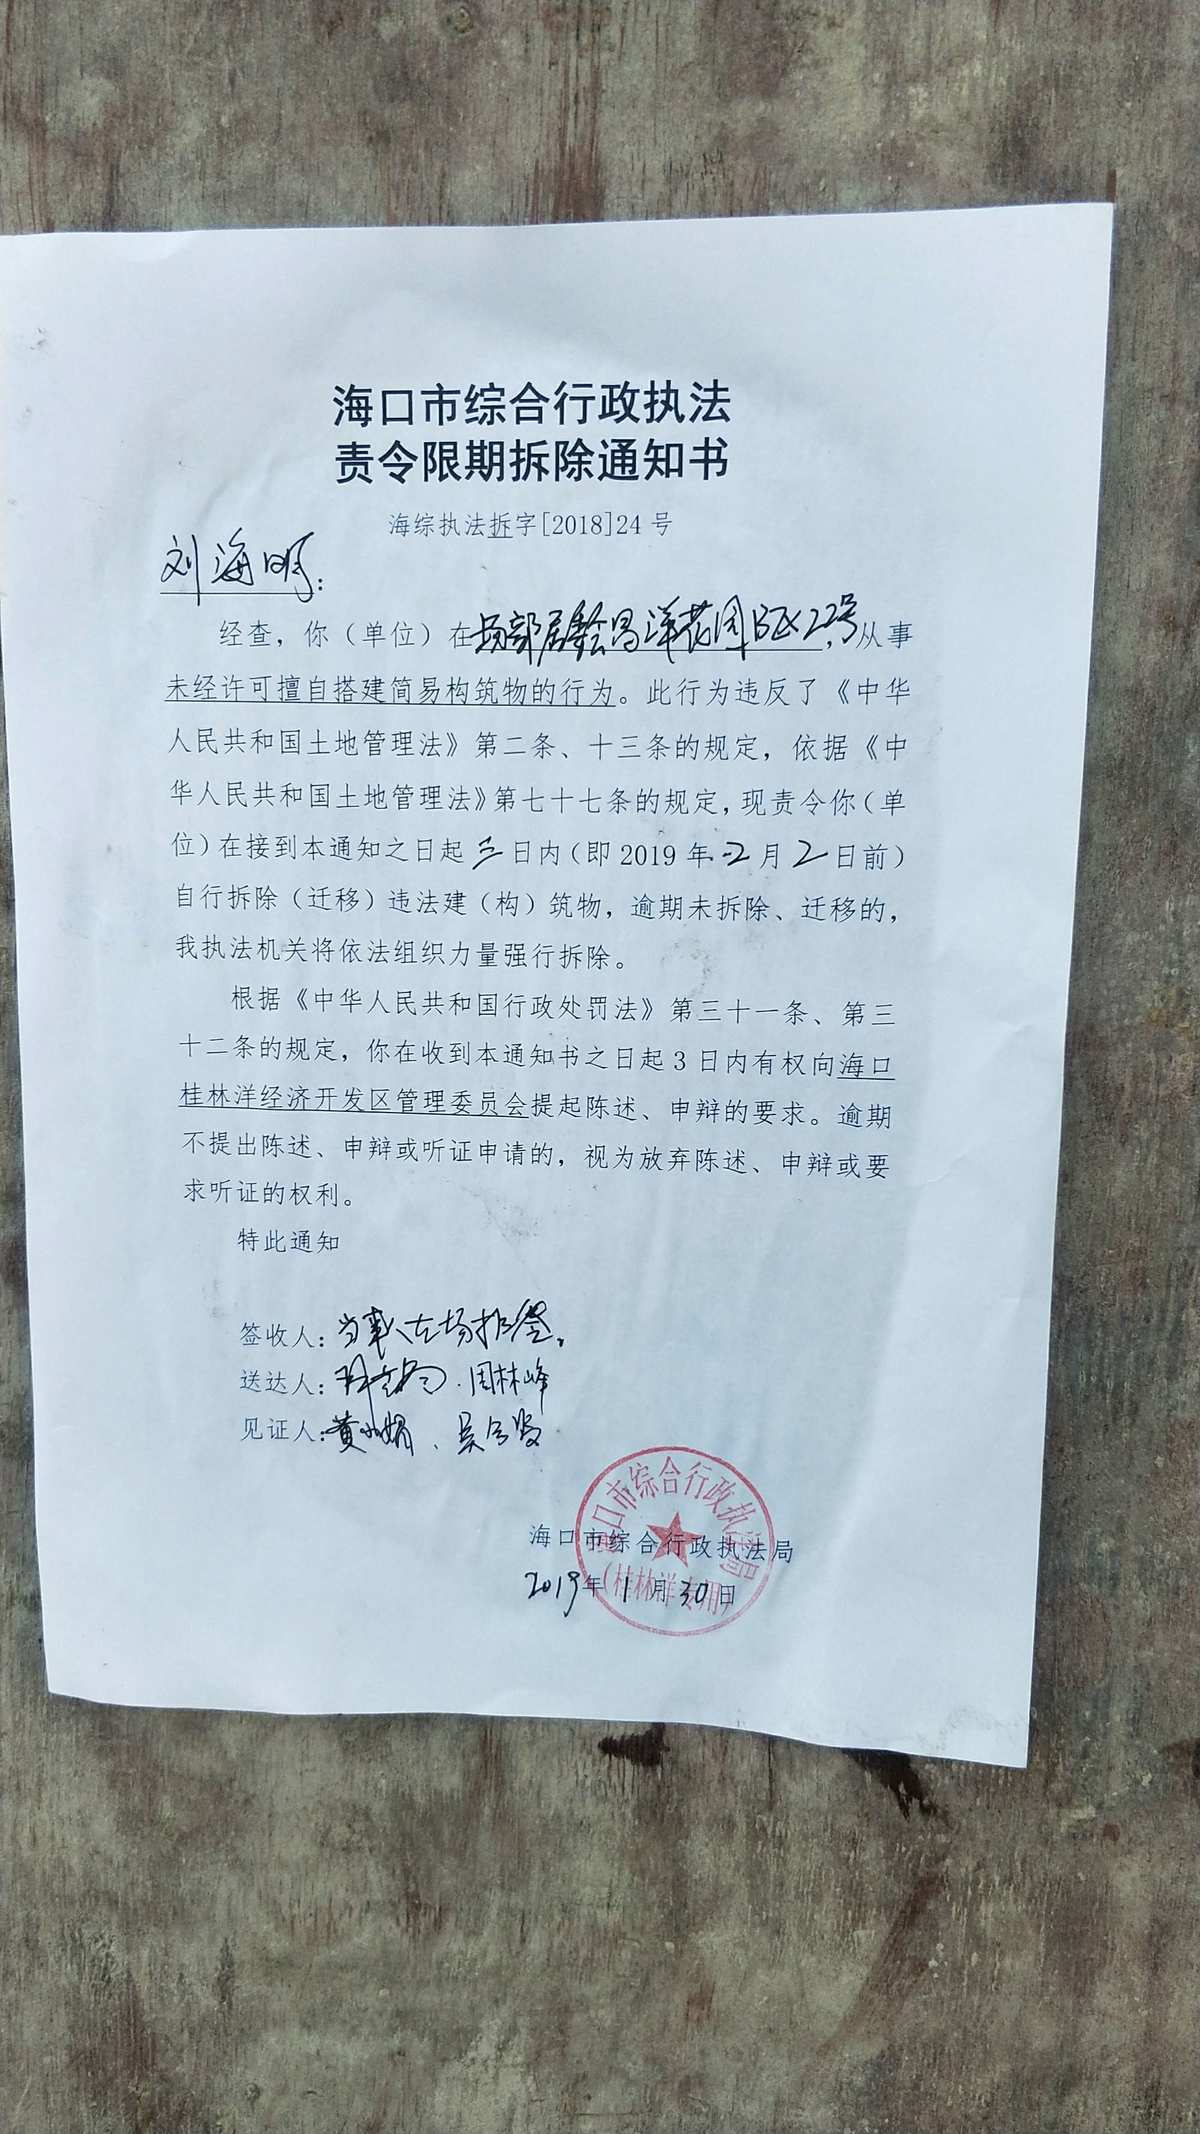 海口市综合行政执法
责令限期拆除通知书
海综执法拆字[2018]24号
刘海明：
经查，你（单位）在场部居委会昌洋花园B区22号，从事
未经许可擅自搭建简易构筑物的行为。此行为违反了《中华
人民共和国土地管理法》第二条、十三条的规定，依据《中
华人民共和国土地管理法》第七十七条的规定，现责令你（单
位）在接到本通知之日起三日内（即2019年2月2日前）
自行拆除（迁移）违法建（构）筑物，逾期未拆除、迁移的，
我执法机关将依法组织力量强行拆除。
根据《中华人民共和国行政处罚法》第三十一条、第三
十二条的规定，你在收到本通知书之日起3日内有权向海口
桂林洋经济开发区管理委员会提起陈述、申辩的要求。逾期
不提出陈述、申辩或听证申请的，视为放弃陈述、申辩或要
求听证的权利。
特此通知
签收人：当事人在场拒签。
送达人：周林峰
见证人：黄小娟、吴
海口市综合行政执法局
2019年1月30日
海口市综合行政执法局
（桂林洋专用）